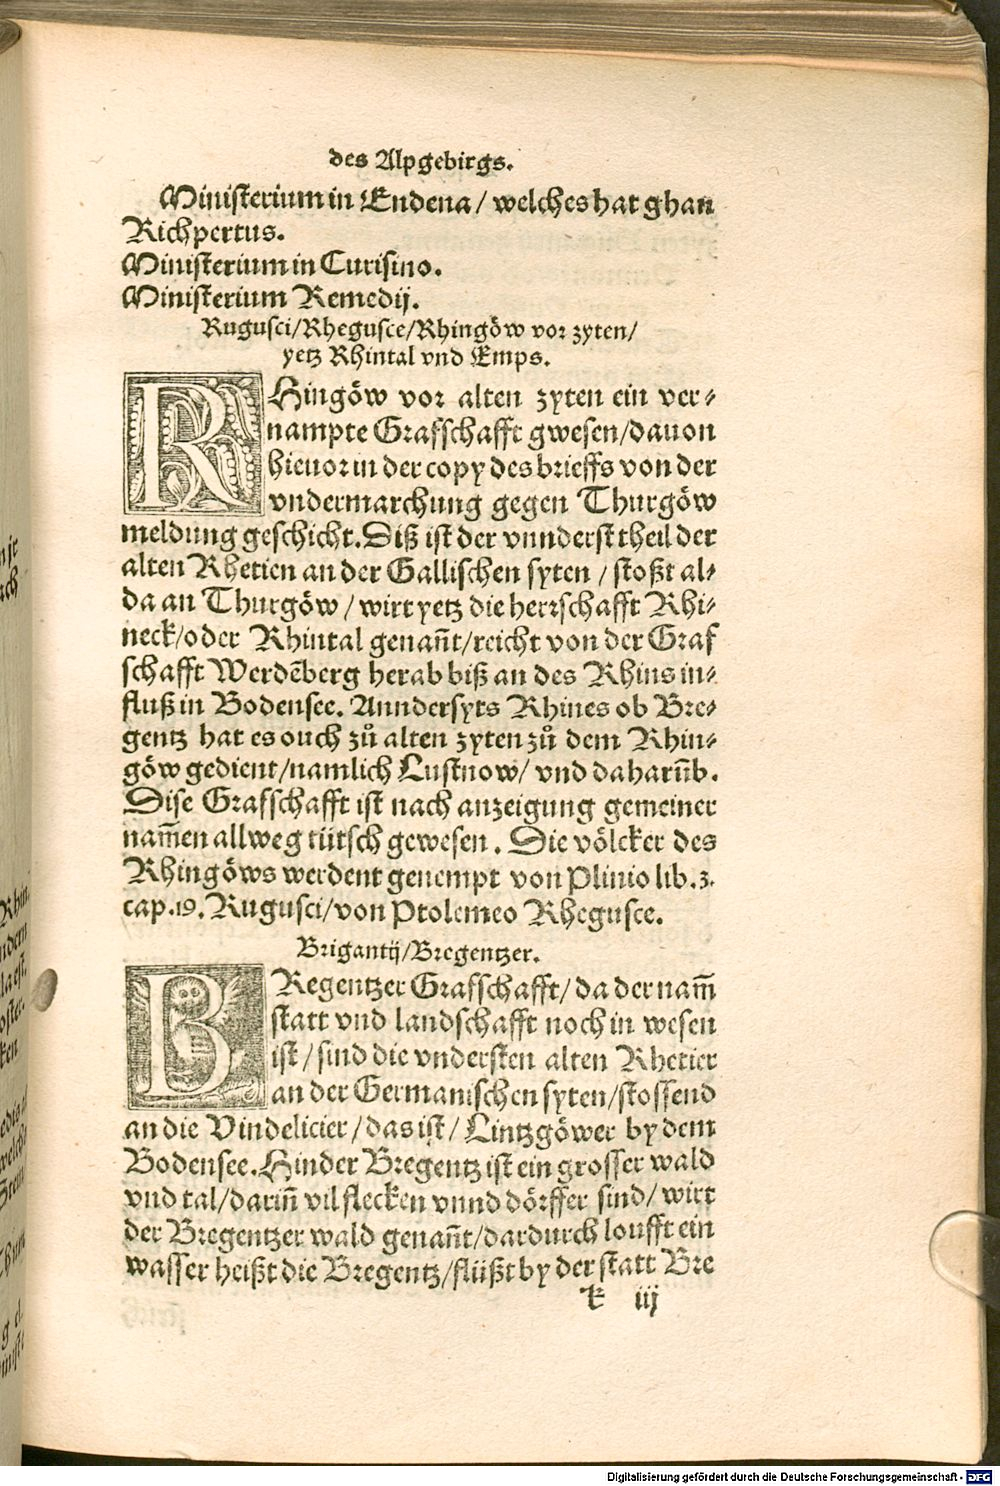 des Alpgebirgs.
Ministerium in Endena / welches hat ghan
Richpertus.
Ministerium in Curisino.
Ministerium Remedij.
Rugusci/Rhegusce/Rhingöw vor zyten/
yetz Rhintal vnd Emps.
RHingöw vor alten zyten ein ver⸗
nampte Grafschafft gwesen/dauon
hieuor in der copy des brieffs von der
vndermarchung gegen Thurgöw
meldung geschicht. Diß ist der vnnderst theil der
alten Rhetien an der Gallischen syten / stoßt al⸗
da an Thurgöw / wirt yetz die herrschafft Rhi⸗
neck/oder Rhintal genañt/reicht von der Graf
schafft Werdẽberg herab biß an des Rhins in⸗
fluß in Bodensee. Anndersyts Rhines ob Bre⸗
gentz hat es ouch zů alten zyten zů dem Rhin⸗
göw gedient/namlich Lustnow/ vnd daharũb.
Dise Grafschafft ist nach anzeigung gemeiner
nam̃en allweg tütsch gewesen. Die völcker des
Rhingöws werdent genempt von Plinio lib. 3.
cap. 19. Rugusci/von Ptolemeo Rhegusce.
Brigantij/Bregentzer.
BRegentzer Grafschafft/ da der nam̃
statt vnd landschafft noch in wesen
ist / sind die vndersten alten Rhetier
an der Germanischen syten/stossend
an die Vindelicier / das ist / Lintzgöwer by dem
Bodensee. Hinder Bregentz ist ein grosser wald
vnd tal/dariñ vil flecken vnnd dörffer sind/ wirt
der Bregentzer wald genañt/dardurch loufft ein
wasser heißt die Bregentz/flüßt by der statt Bre
k iij
Digitalisierung gefördert durch die Deutsche Forschungsgemeinschaft - DFG